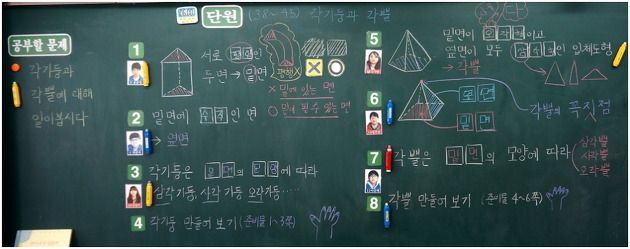 단원 (38~45) 각기둥과 각뿔
공부할 문제
각기둥과
각뿔에 대해
알아봅시다
1
서로 평행인
두면 → 밑면
편행 X
X 밑에 있는 면
2
밑면에 수직인 면
→ 옆면
3
각기둥은 밑면의 모양에 따라
삼각기둥, 사각기둥 오각기둥·····
4
각기둥 만들어 보기 (준비물 1~3쪽)
5
밑면이 다각형이고
옆면이 모두 삼각형인 입체도형
→ 각뿔
6
옆면
밑면
각뿔의 꼭지점
7
각뿔은 밑면의 모양에 따라
삼각뿔
사각뿔
오각뿔
8
각뿔 만들어 보기 (준비물 4~6쪽)